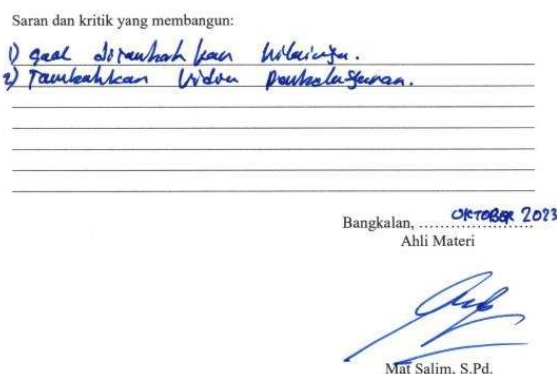 Saran dan kritik yang membangun:
1) Soal ditambahkan nilainya.
2) Tambahkan Video pembelajaran.
Bangkalan, .......................
OKTOBER 2023
Ahli Materi
Mat Salim, S.Pd.